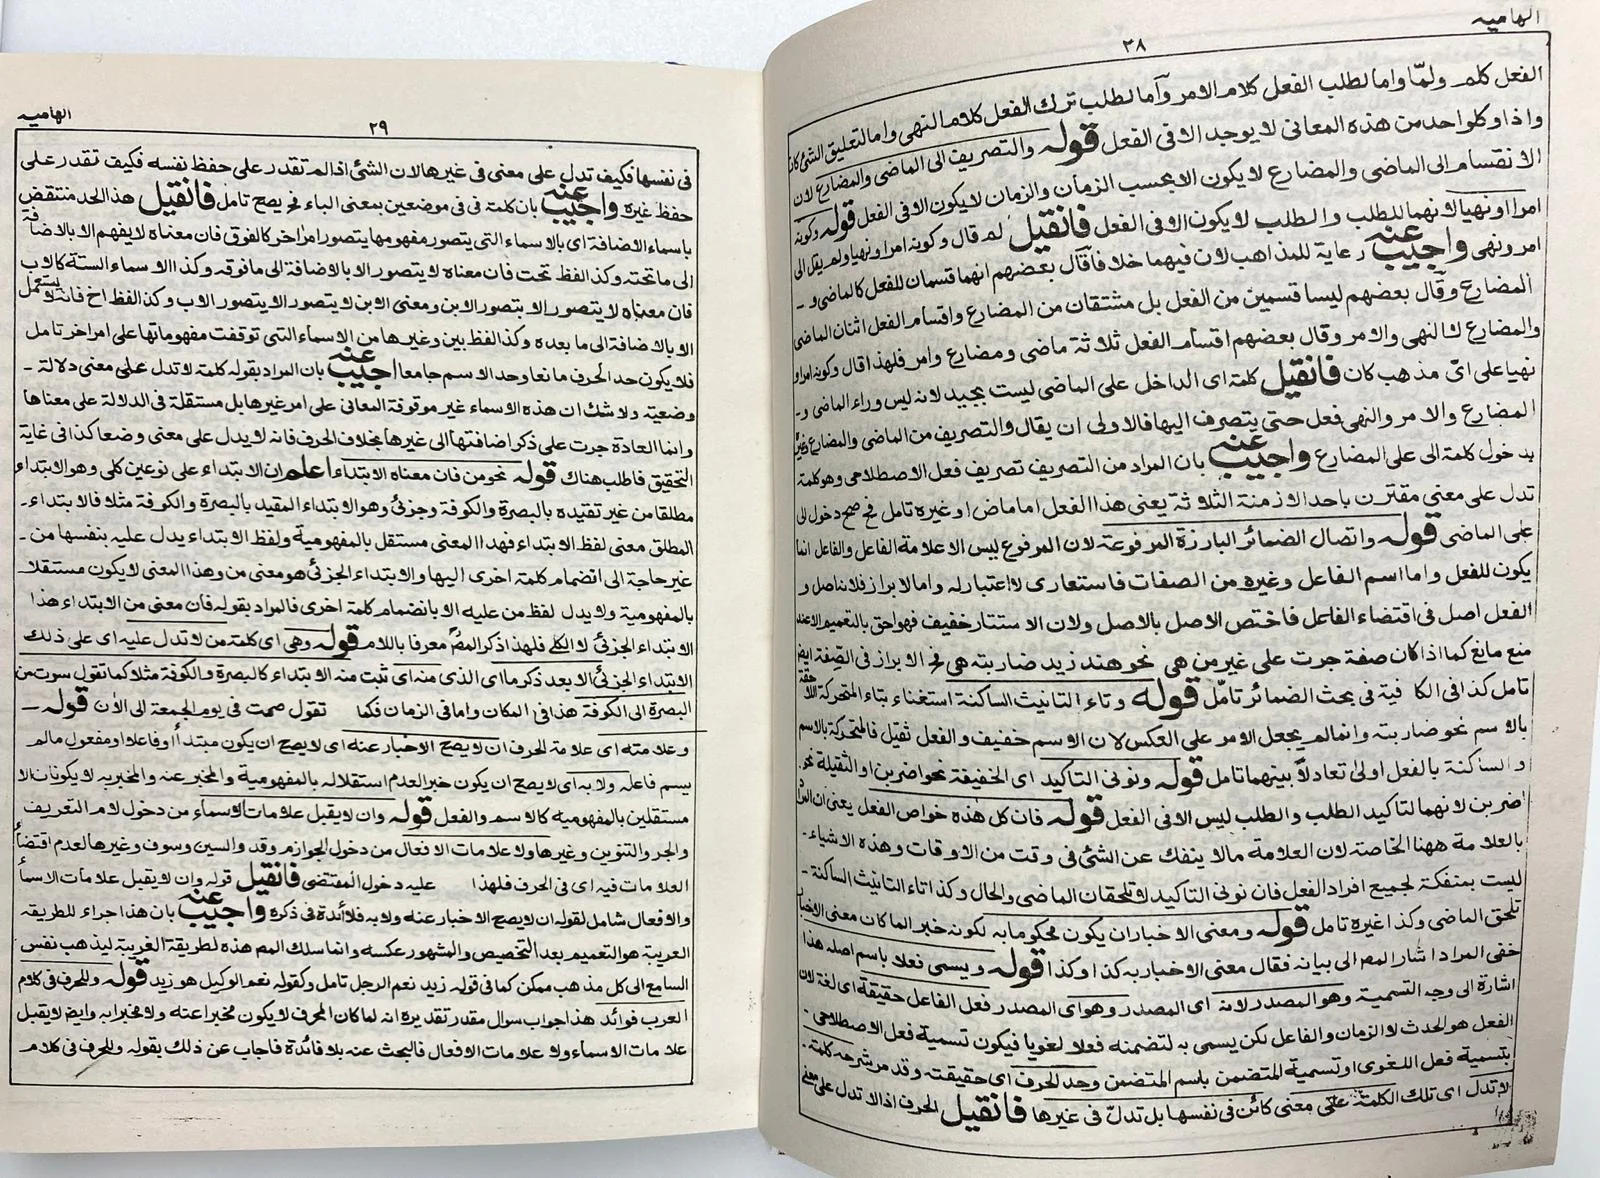 الهاميه
٢٨
الفعل كلم ولمّا واما لطلب الفعل كلام الامر وآما لطلب ترك الفعل كلاما لنهى واما لتعليق الشئ كان
واذا وكلواحد من هذه المعانى لا يوجد الا فى الفعل قوله والتصريف الى الماضى والمضارع لان
الانقسام الى الماضى والمضارع لا يكون الا بحسب الزمان والزمان لا يكون الا فى الفعل قوله وكونه
امرا او نهيا لانهما للطلب والطلب لا يكون الا فى الفعل فانقيل لم قال وكونه امرا ونهيا ولم يقل الى
امر ونهى واجيب عنه رعاية للمذاهب لان فيهما خلافا قال بعضهم انهما قسمان للفعل كالماضى و
المضارع وقال بعضهم ليسا قسمين من الفعل بل مشتقان من المضارع واقسام الفعل اثنان الماضى
والمضارع كالنهى والامر وقال بعضهم اقسام الفعل ثلاثة ماضى ومضارع وامر فلهذا قال وكونه امرا و
نهيا على اىّ مذهب كان فانقيل كلمة اى الداخل على الماضى ليست بجيد لانه ليس وراء الماضى و
المضارع والامر والنهى فعل حتى يتصرف اليها فالاولى ان يقال والتصريف من الماضى والمضارع وغير
بدخول كلمة الى على المضارع واجيب عنه بان المراد من التصريف تصريف فعل الاصطلاحى وهو كلمة
تدل على معنى مقترن باحد الازمنة الثلاثة يعنى هذا الفعل اما ماض او غيره تامل فح صح دخول الى
على الماضى قوله واتصال الضمائر البارزة المرفوعة لان المرفوع ليس الا علامة الفاعل والفاعل انما
يكون للفعل واما اسم الفاعل وغيره من الصفات فاستعارى لا اعتبار له واما الابراز فلانه اصل و
الفعل اصل فى اقتضاء الفاعل فاختص الاصل بالاصل ولان الاستتار خفيف فهو احق بالتعميم الا عند
منع مانع كما اذا كان صفة جرت على غير من هى نحو هند زيد ضاربته هى فح الابراز فى الصفة ايض
تامل كذا فى الكافية فى بحث الضمائر تامّل قوله وتاء التانيث الساكنة استغناء بتاء المتحركة اللاحقة
بالاسم نحو ضاربتة وانما لم يجعل الامر على العكس لان الاسم خفيف والفعل ثقيل فالمتحركة بالاسم
والساكنة بالفعل اولى تعادلاً بينهما تامل قوله ونونى التاكيد اى الخفيفة نحو اضربن او الثقيلة نحو
اضربن لانهما لتاكيد الطلب والطلب ليس الا فى الفعل قوله فان كل هذه خواص الفعل يعنى ان المراد
بالعلامة ههنا الخاصة لان العلامة مالا ينفك عن الشئ فى وقت من الاوقات وهذه الاشياء
ليست بمنفكة لجميع افراد الفعل فان نونى التاكيد لا تلحقان الماضى والحال وكذا تاء التانيث الساكنة
تلحق الماضى وكذا غيره تامل قوله ومعنى الاخبار ان يكون محكوما به لكونه خبر الما كان معنى الاخبار
خفى المراد اشار المصر الى بيانه فقال معنى الاخبار به كذا وكذا قوله ويسمى فعلا باسم اصله هذا
اشارة الى وجه التسمية وهو المصدر لانه اى المصدر وهو اى المصدر فعل الفاعل حقيقة اى لغة لان
الفعل هو الحدث لا الزمان والفاعل لكن يسمى به لتضمنه فعلا لغويا فيكون تسمية فعل الاصطلاحى
بتسمية فعل اللغوى او تسمية المتضمن باسم المتضمن وحد الحرف اى حقيقته وقد مر شرحه كلمة
لا تدل اى تلك الكلمة على معنى كائن فى نفسها بل تدلّ فى غيرها فانقيل الحرف اذا لا تدل على معنى
الهاميه
٢٩
فى نفسها فكيف تدل على معنى فى غيرها لان الشئ اذا لم تقدر على حفظ نفسه فكيف تقدر على
حفظ غيره واجيب عنه بان كلمة فى فى موضعين بمعنى الباء فح يصح تامل فانقيل هذا الحد منتقض
باسماء الاضافة اى بالاسماء التى يتصور مفهومها يتصور امر اخر كالفوق فان معناه لا يفهم الا بالاضافة
الى ما تحته وكذ الفظ تحت فان معناه لا يتصور الا بالاضافة الى ما فوقه وكذا الاسماء الستة كالاب
فان معناه لا يتصور الا بتصور الابن ومعنى الابن لا يتصور الا يتصور الاب وكذ الفظ اخ فانه لا يستعمل
الا بالاضافة الى ما بعده وكذ الفظ بين وغيرها من الاسماء التى توقفت مفهوماتها على امر اخر تامل
فلا يكون حد الحرف مانعا وحد الاسم جامعا اجيب عنه بان المراد بقوله كلمة لا تدل على معنى دلالة
وضعية ولا شك ان هذه الاسماء غير موقوفة المعانى على امر غيرها بل مستقلة فى الدلالة على معناها
وانما العادة جرت على ذكر اضافتها الى غيرها بخلاف الحرف فانه لا يدل على معنى وضعا كذا فى غاية
التحقيق فاطلب هناك قوله نحو من فان معناه الابتداء اعلم ان الابتداء على نوعين كلى وهو الابتداء
مطلقا من غير تقيده بالبصرة والكوفة وجزئى وهو الابتداء المقيد بالبصرة والكوفة مثلا فالابتداء
المطلق معنى لفظ الابتداء فهذا المعنى مستقل بالمفهومية ولفظ الابتداء يدل عليه بنفسها من
غير حاجة الى انضمام كلمة اخرى اليها والابتداء الجزئى هو معنى من وهذا المعنى لا يكون مستقلا
بالمفهومية ولا يدل لفظ من عليه الا بانضمام كلمة اخرى فالمراد بقوله فان معنى من الابتداء هذا
الابتداء الجزئى لا الكلى فلهذا ذكر المصر معرفا باللام قوله وهى اى كلمة من لا تدل عليه اى على ذلك
الابتداء الجزئى الا بعد ذكر ما اى الذى منه اى ثبت منه الابتداء كالبصرة والكوفة مثلا كما تقول سرت من
البصرة الى الكوفة هذا فى المكان واما فى الزمان فكما تقول صمت فى يوم الجمعة الى الأن قوله
وعلامته اى علامة الحرف ان لا يصح الاخبار عنه اى لا يصح ان يكون مبتدأ او فاعلا او مفعول مالم
يسم فاعله ولا به اى لا يصح ان يكون خبر العدم استقلاله بالمفهومية والمخبر عنه والمخبر به لا يكونان الا
مستقلين بالمفهومية كالاسم والفعل قوله وان لا يقبل علامات الاسماء من دخول لام التعريف
والجر والتنوين وغيرها ولا علامات الافعال من دخول الجوازم وقد والسين وسوف وغيرها لعدم اقتضاء
العلامات فيه اى فى الحرف فلهذا عليه دخول المقتضى فانقيل قوله وان لا يقبل علامات الاسماء
والافعال شامل لقوله ان لا يصح الاخبار عنه ولا به فلا فائدة فى ذكره واجيب عنه بان هذا اجراء للطريقه
العربية هو التعميم بعد التخصيص والمشهور عكسه وانما سلك المصر هذه لطريقة الغريبة ليذهب نفس
السامع الى كل مذهب ممكن كما فى قوله زيد نعم الرجل تامل وكقوله نعم الوكيل هو زيد قوله وللحرف فى كلام
العرب فوائد هذا جواب سوال مقدر تقديره انه لما كان الحرف لا يكون مخبرا عنه ولا مخبرا به وايض لا يقبل
علامات الاسماء ولا علامات الافعال فالبحث عنه بلا فائدة فاجاب عن ذلك بقوله وللحرف فى كلام